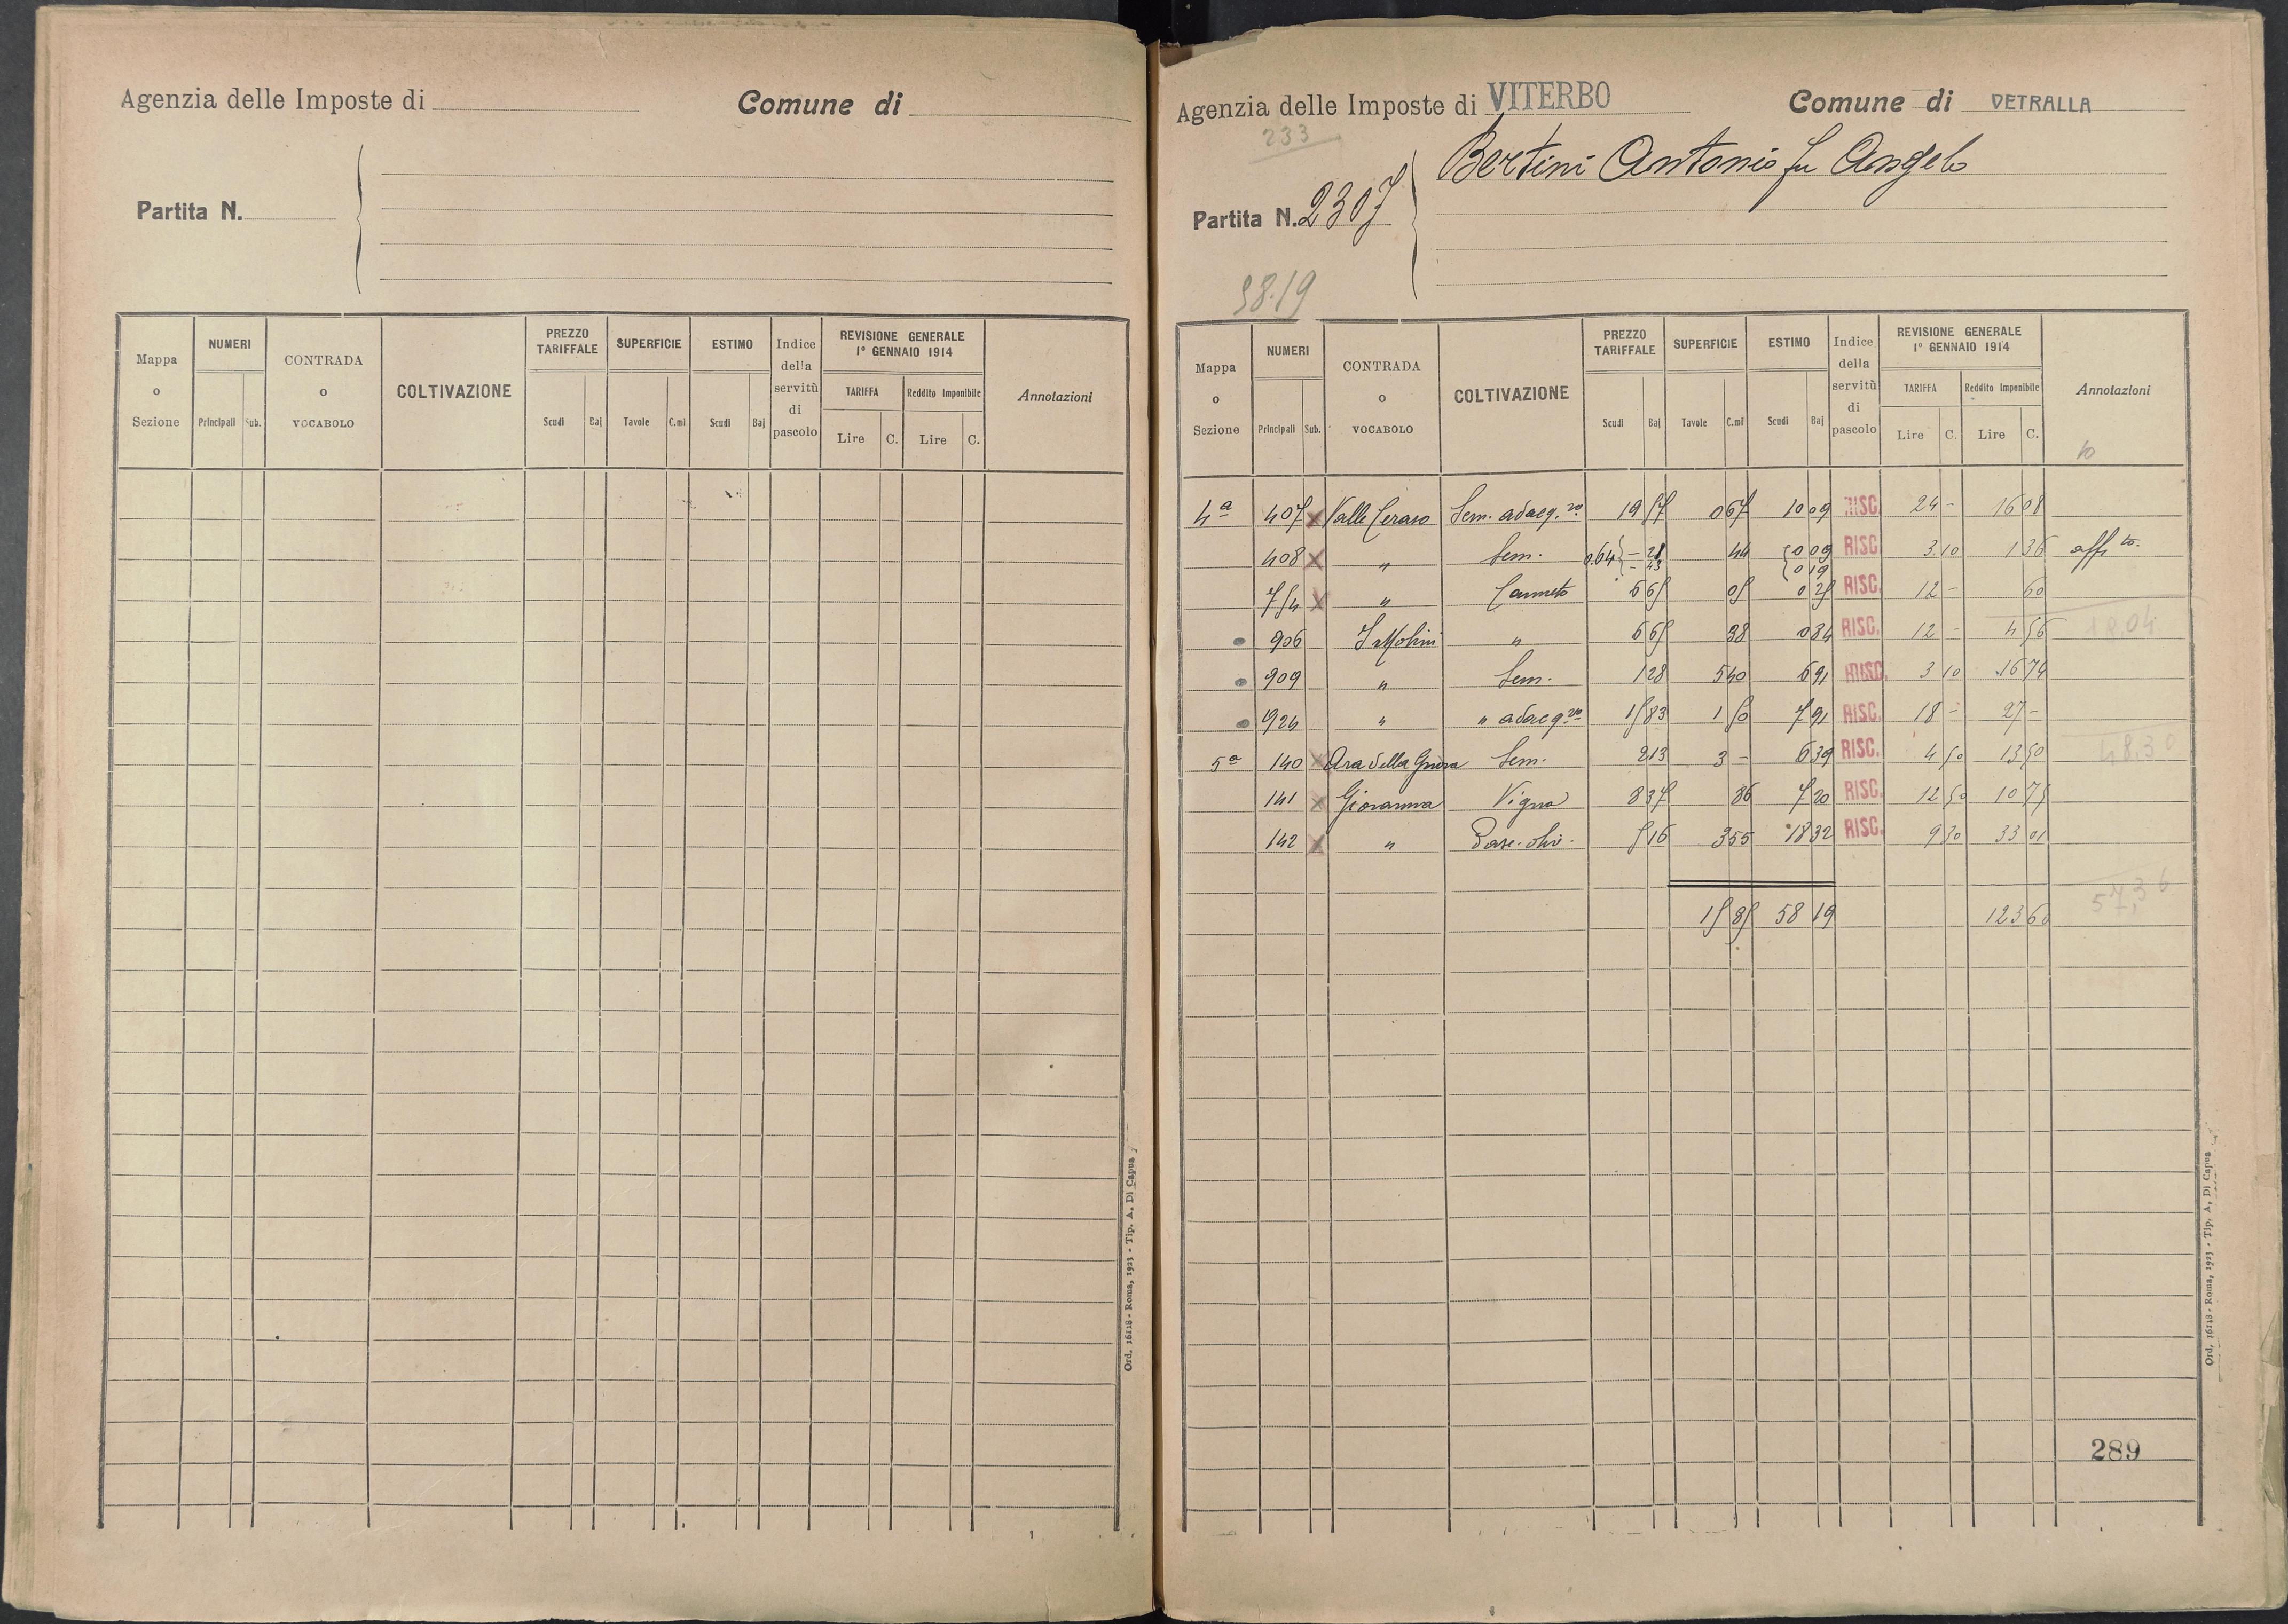 Agenzia delle Imposte di Comune di
Partita N.
Mappa o Sezione NUMERI Principali Sub. CONTRADA o VOCABOLO COLTIVAZIONE PREZZO TARIFFALE Scudi Baj SUPERFICIE Tavole C.mi ESTIMO Scudi Baj Indice della servitù di pascolo REVISIONE GENERALE 1° GENNAIO 1914 TARIFFA Lire C. Reddito Imponibile Lire C. Annotazioni
Ord. 16118 - Roma, 1923 - Tip. A. Di Capua
Agenzia delle Imposte di VITERBO Comune di VETRALLA
233
Bertini Antonio fu Angelo
Partita N. 2307
58.19
Mappa o Sezione NUMERI Principali Sub. CONTRADA o VOCABOLO COLTIVAZIONE PREZZO TARIFFALE Scudi Baj SUPERFICIE Tavole C.mi ESTIMO Scudi Baj Indice della servitù di pascolo REVISIONE GENERALE 1° GENNAIO 1914 TARIFFA Lire C. Reddito Imponibile Lire C. Annotazioni
10
4ª 407 x Valle Ceraso Sem. adacq.vo 1957 067 1009 RISC. 24 - 1608
408 x " Sem. 0.64 { - 21 - 43 44 { 009 019 RISC. 3.10 136 aff.to
754 x " Canneto 565 05 028 RISC. 12 - 60
906 I Molini " 565 38 084 RISC. 12 - 456 18.04
909 " Sem. 128 540 691 RISC. 3 10 1674
924 " " adacq.vo 1583 150 791 RISC. 18 - 27 -
5ª 140 x Ara della Gnora Sem. 213 3 - 639 RISC. 4 50 1350 48.30
141 x Giovanna Vigna 837 86 720 RISC. 12 50 1075
142 x " Pasc. oliv. 516 355 1832 RISC. 9 30 3301
1585 5819 12360 57,36
289
Ord. 16118 - Roma, 1923 - Tip. A. Di Capua